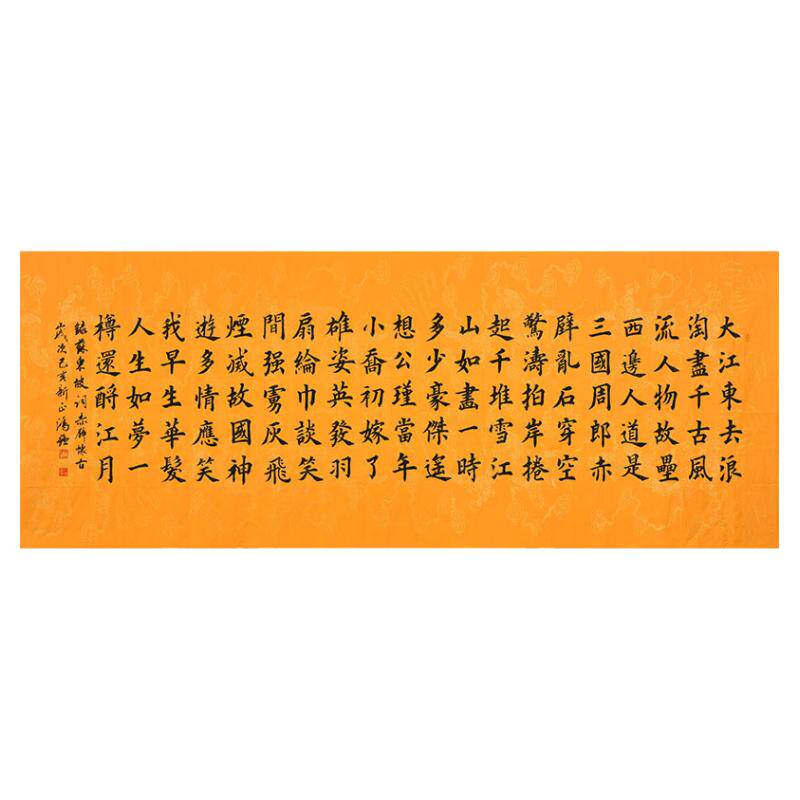 大江東去浪
淘盡千古風
流人物故壘
西邊人道是
三國周郎赤
壁亂石穿空
驚濤拍岸捲
起千堆雪江
山如畫一時
多少豪傑遙
想公瑾當年
小喬初嫁了
雄姿英發羽
扇綸巾談笑
間强虜灰飛
煙滅故國神
遊多情應笑
我早生華髮
人生如夢一
樽還酹江月
錄蘇東坡詞赤壁懷古
歲次己亥新正